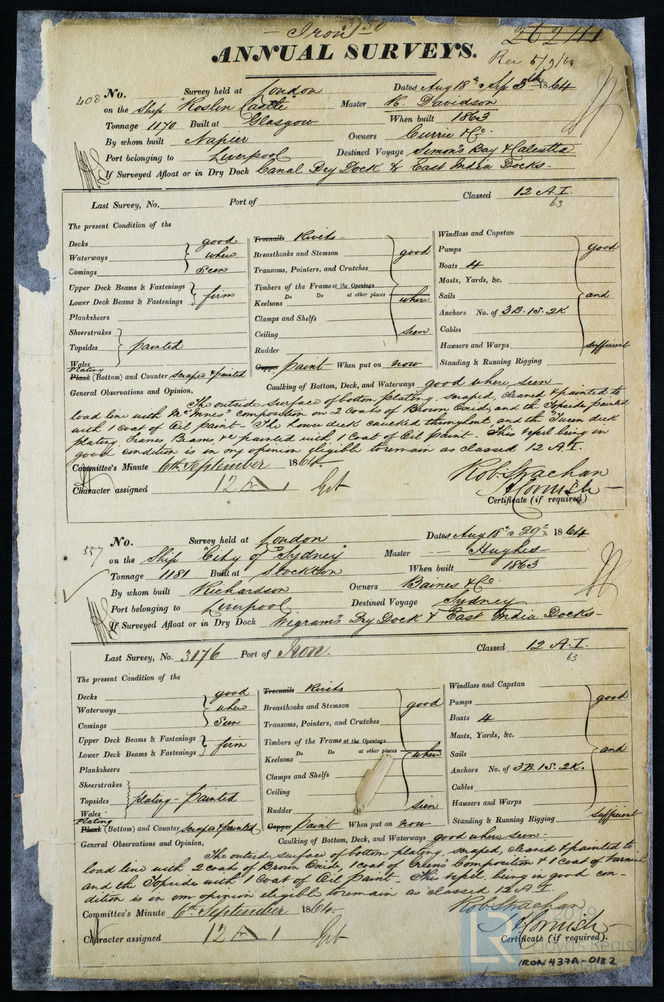 Iron
ANNUAL SURVEYS.
Rec 5/9/64
408 No. Survey held at London Dates Aug 18th & Sep 5th 1864
on the Ship Roslin Castle Master K. Davidson
Tonnage 1170 Built at Glasgow When built 1863
By whom built Napier Owners Currie & Co.
Port belonging to Liverpool Destined Voyage Simon's Bay & Calcutta
If Surveyed Afloat or in Dry Dock Canal Dry Dock & East India Docks.
Last Survey, No. Port of Classed 12 A.I.
63
The present Condition of the
Decks good
Waterways where
Comings seen
Upper Deck Beams & Fastenings
Lower Deck Beams & Fastenings firm
Planksheers
Sheerstrakes
Topsides painted
Wales
Plating
Plank (Bottom) and Counter scraped & painted
Treenails Rivits
Breasthooks and Stemson good
Transoms, Pointers, and Crutches
Timbers of the Frame at the Openings
Do Do at other places where
Keelsons
Clamps and Shelfs
Ceiling seen
Rudder
Copper Paint When put on now
Windlass and Capstan
Pumps good
Boats 4
Masts, Yards, &c.
Sails and
Anchors No. of 3B. 1S. 2K
Cables
Hawsers and Warps sufficient
Standing & Running Rigging
General Observations and Opinion, Caulking of Bottom, Deck, and Waterways good where seen
The outside surface of bottom plating, scraped, cleaned & painted to
load line with McInnes' composition on 2 coats of Brown Oxide, and the Topside, painted
with 1 coat of Oil paint - The lower deck caulked throughout, and the Tween deck
plating, Frames Beams &c painted with 1 Coat of Oil Paint. This vessel being in
good condition is in my opinion eligible to remain as classed 12 A.I.
Committee's Minute 6th September 1864
Rob. Strachan
J Cornish
Character assigned 12 A 1
Certificate (if required)
557 No. Survey held at London Dates Aug 18th & 29th 1864
on the Ship "City of Sydney" Master Hughes
Tonnage 1181 Built at Stockton When built 1863
By whom built Richardson Owners Baines & Co.
Port belonging to Liverpool Destined Voyage Sydney
If Surveyed Afloat or in Dry Dock Wigram's Dry Dock & East India Docks
Last Survey, No. 3176 Port of Iron. Classed 12 A.I.
63
The present Condition of the
Decks good
Waterways where
Comings seen
Upper Deck Beams & Fastenings
Lower Deck Beams & Fastenings firm
Planksheers
Sheerstrakes
Topsides plating - painted
Wales
Plating
Plank (Bottom) and Counter scraped & painted
Treenails Rivits
Breasthooks and Stemson good
Transoms, Pointers, and Crutches
Timbers of the Frame at the Openings
Do Do at other places where
Keelsons
Clamps and Shelfs
Ceiling
Rudder seen
Copper Paint When put on now
Windlass and Capstan
Pumps good
Boats 4
Masts, Yards, &c.
Sails and
Anchors No. of 3B. 1S. 2K.
Cables
Hawsers and Warps
Standing & Running Rigging sufficient
General Observations and Opinion, Caulking of Bottom, Deck, and Waterways good where seen
The outside surface of bottom plating, scraped, cleaned & painted to
load line with 2 coats of Brown Oxide, 1 coat of Composition & 1 Coat of
and the Topside with 1 Coat of Oil Paint - This vessel, being in good con-
dition is in our opinion eligible to remain as classed 12 A.I.
Committee's Minute 6th September 1864
Rob. Strachan
J Cornish
Character assigned 12 A 1
Certificate (if required).
LR
2019
Lloyd's Regist
IRON 437A-0182